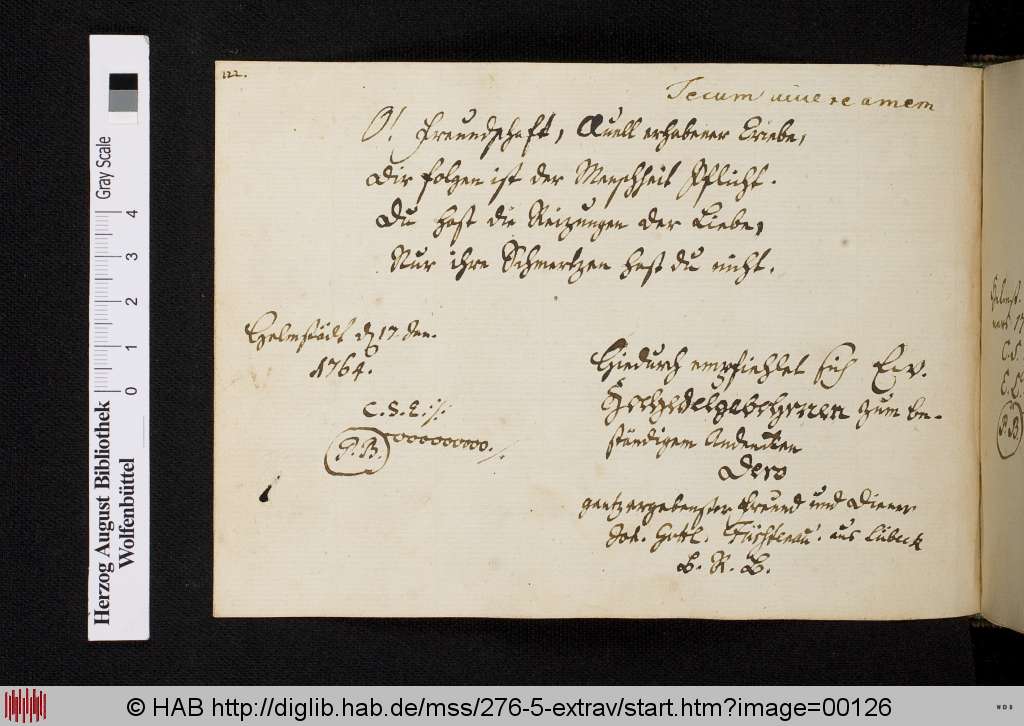 122.
Tecum vivere amem
O! Freundschaft, Quell erhabener Triebe,
Dir folgen ist der Menschheit Pflicht.
Du hast die Reizungen der Liebe,
Nur ihre Schmertzen hast du nicht.
Helmstädt d 17. Jan.
1764.
C. S. E. ://
P. B.
Hiedurch empfiehlet sich Ew.
HochEdelgebohrnen zum be-
ständigem Andencken
Dero
gantz ergebenster Freund und Diener
Joh. Gottl. aus Lübeck
B. R. B.
Herzog August Bibliothek
Wolfenbüttel
0 1 2 3 4
Gray Scale
© HAB http://diglib.hab.de/mss/276-5-extrav/start.htm?image=00126